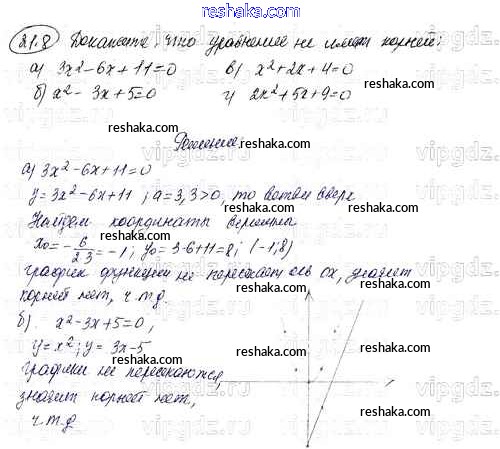 reshaka.com
21.8 Докажите, что уравнение не имеет корней:
а) 3x²-6x+11=0 в) x²+2x+4=0
б) x²-3x+5=0 г) 2x²+5x+9=0
reshaka.com
reshaka.com
Решение:
а) 3x²-6x+11=0 reshaka.com
y=3x²-6x+11; a=3, 3>0, то ветви вверх
Найдем координаты вершины
x₀=-6/2·3=-1; y₀=3-6+11=8; (-1,8)
reshaka.com
график функции не пересекает ось ох, значит
корней нет, ч.т.д.
reshaka.com
б) x²-3x+5=0,
y=x²; y=3x-5
reshaka.com
графики не пересекаются,
reshaka.com
значит корней нет,
ч.т.д
reshaka.com